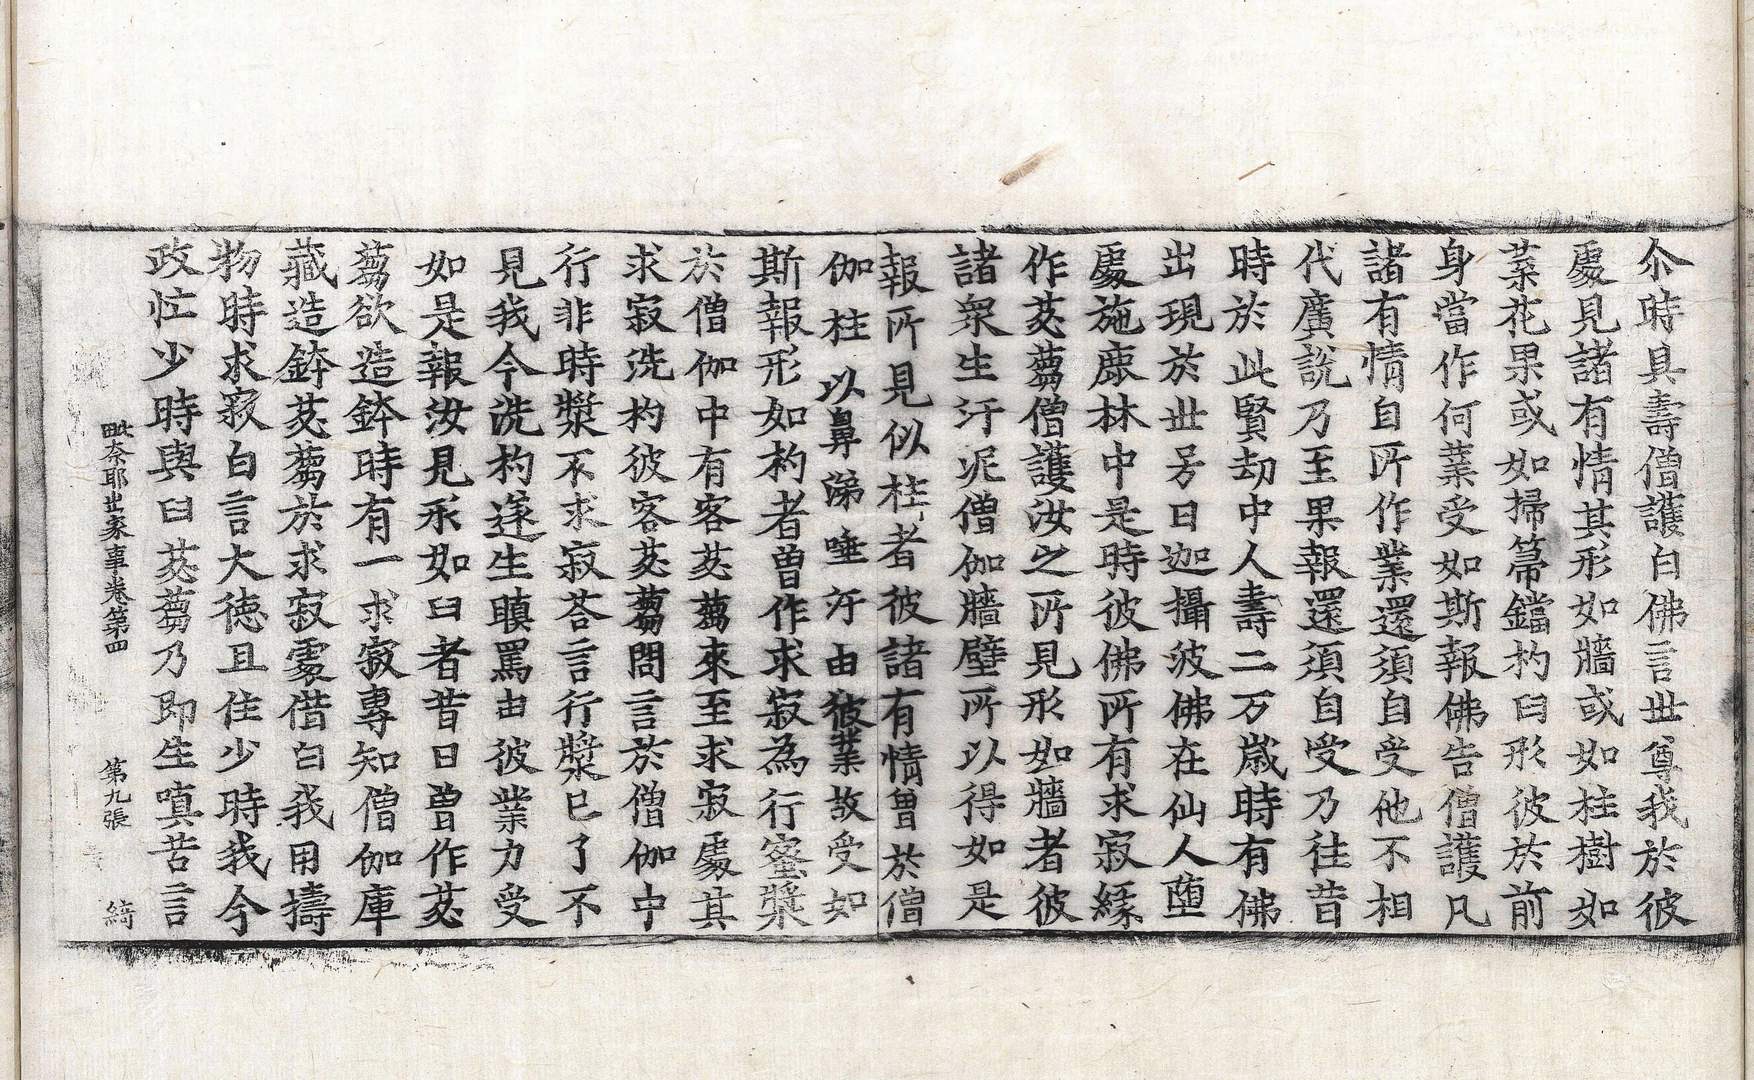 尒時具壽僧護白佛言世尊我於彼
處見諸有情其形如牆或如柱樹如
葉花果或如掃箒鐺杓臼形彼於前
身當作何業受如斯報佛告僧護凡
諸有情自所作業還須自受他不相
代廣說乃至果報還須自受乃往昔
時於此賢劫中人壽二万歲時有佛
出現於世号曰迦攝波佛在仙人墮
處施鹿林中是時彼佛所有求寂緣
作苾蒭僧護汝之所見形如牆者彼
諸衆生汙泥僧伽牆壁所以得如是
報所見似柱者彼諸有情曾於僧
伽柱以鼻涕唾汙由彼業故受如
斯報形如杓者曾作求寂為行蜜漿
於僧伽中有客苾蒭來至求寂處其
求寂洗杓彼客苾蒭問言於僧伽中
行非時漿不求寂荅言行漿已了不
見我今洗杓遂生瞋罵由彼業力受
如是報汝見形如臼者昔日曾作苾
蒭欲造鉢時有一求寂專知僧伽庫
藏造鉢苾蒭於求寂處借白我用擣
物時求寂白言大德且住少時我今
政忙少時與臼苾蒭乃即生嗔苦言
毗奈耶出家事卷第四 第九張 綺